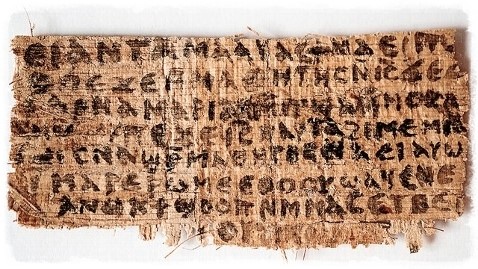 ⲉⲓ ⲁⲛ ⲧⲁⲙⲁⲁⲩ ⲁⲥϯ ⲛⲁⲉⲓ ⲡ
ⲡⲉϫⲉ ⲙⲙⲁⲑⲏⲧⲏⲥ ⲛⲓⲥ ϫⲉ ⲥ
ⲁⲣⲛⲁ ⲙⲁⲣⲓⲁⲙ ⲙⲡϣⲁ ⲙⲙⲟⲥ ⲁ
ⲡⲉϫⲉ ⲓⲥ ⲛⲁⲩ ⲧⲁϩⲓⲙⲉ ⲙⲛ
ⲥⲛⲁϣⲣⲙⲁⲑⲏⲧⲏⲥ ⲛⲁⲉⲓ ⲁⲩⲱ
ⲙⲁⲣⲉⲣⲱⲙⲉ ⲉⲑⲟⲟⲩ ϣⲁϥⲉ ⲛⲉ
ⲁⲛⲟⲕ ϯϣⲟⲟⲡ ⲛⲙⲙⲁⲥ ⲉⲧⲃⲉ ⲡ